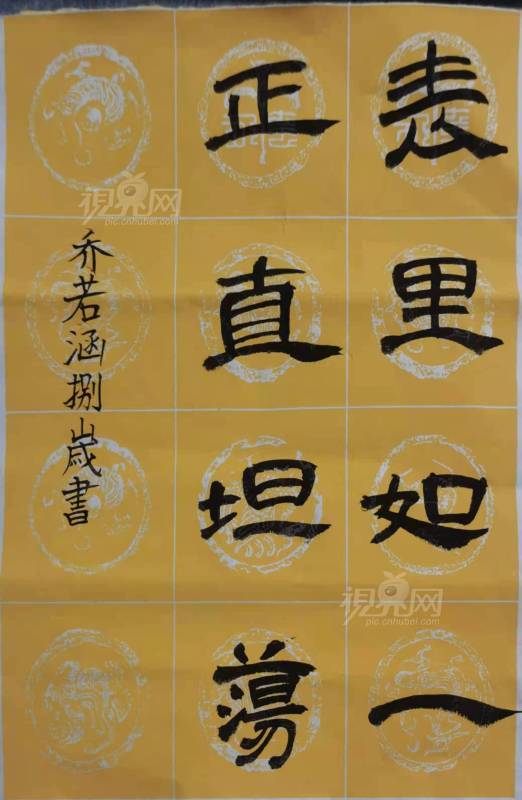 表里如一
正直坦蕩
乔若涵捌歲書
視界网
pic.cnhubei.com
視界网
pic.cnhubei.com